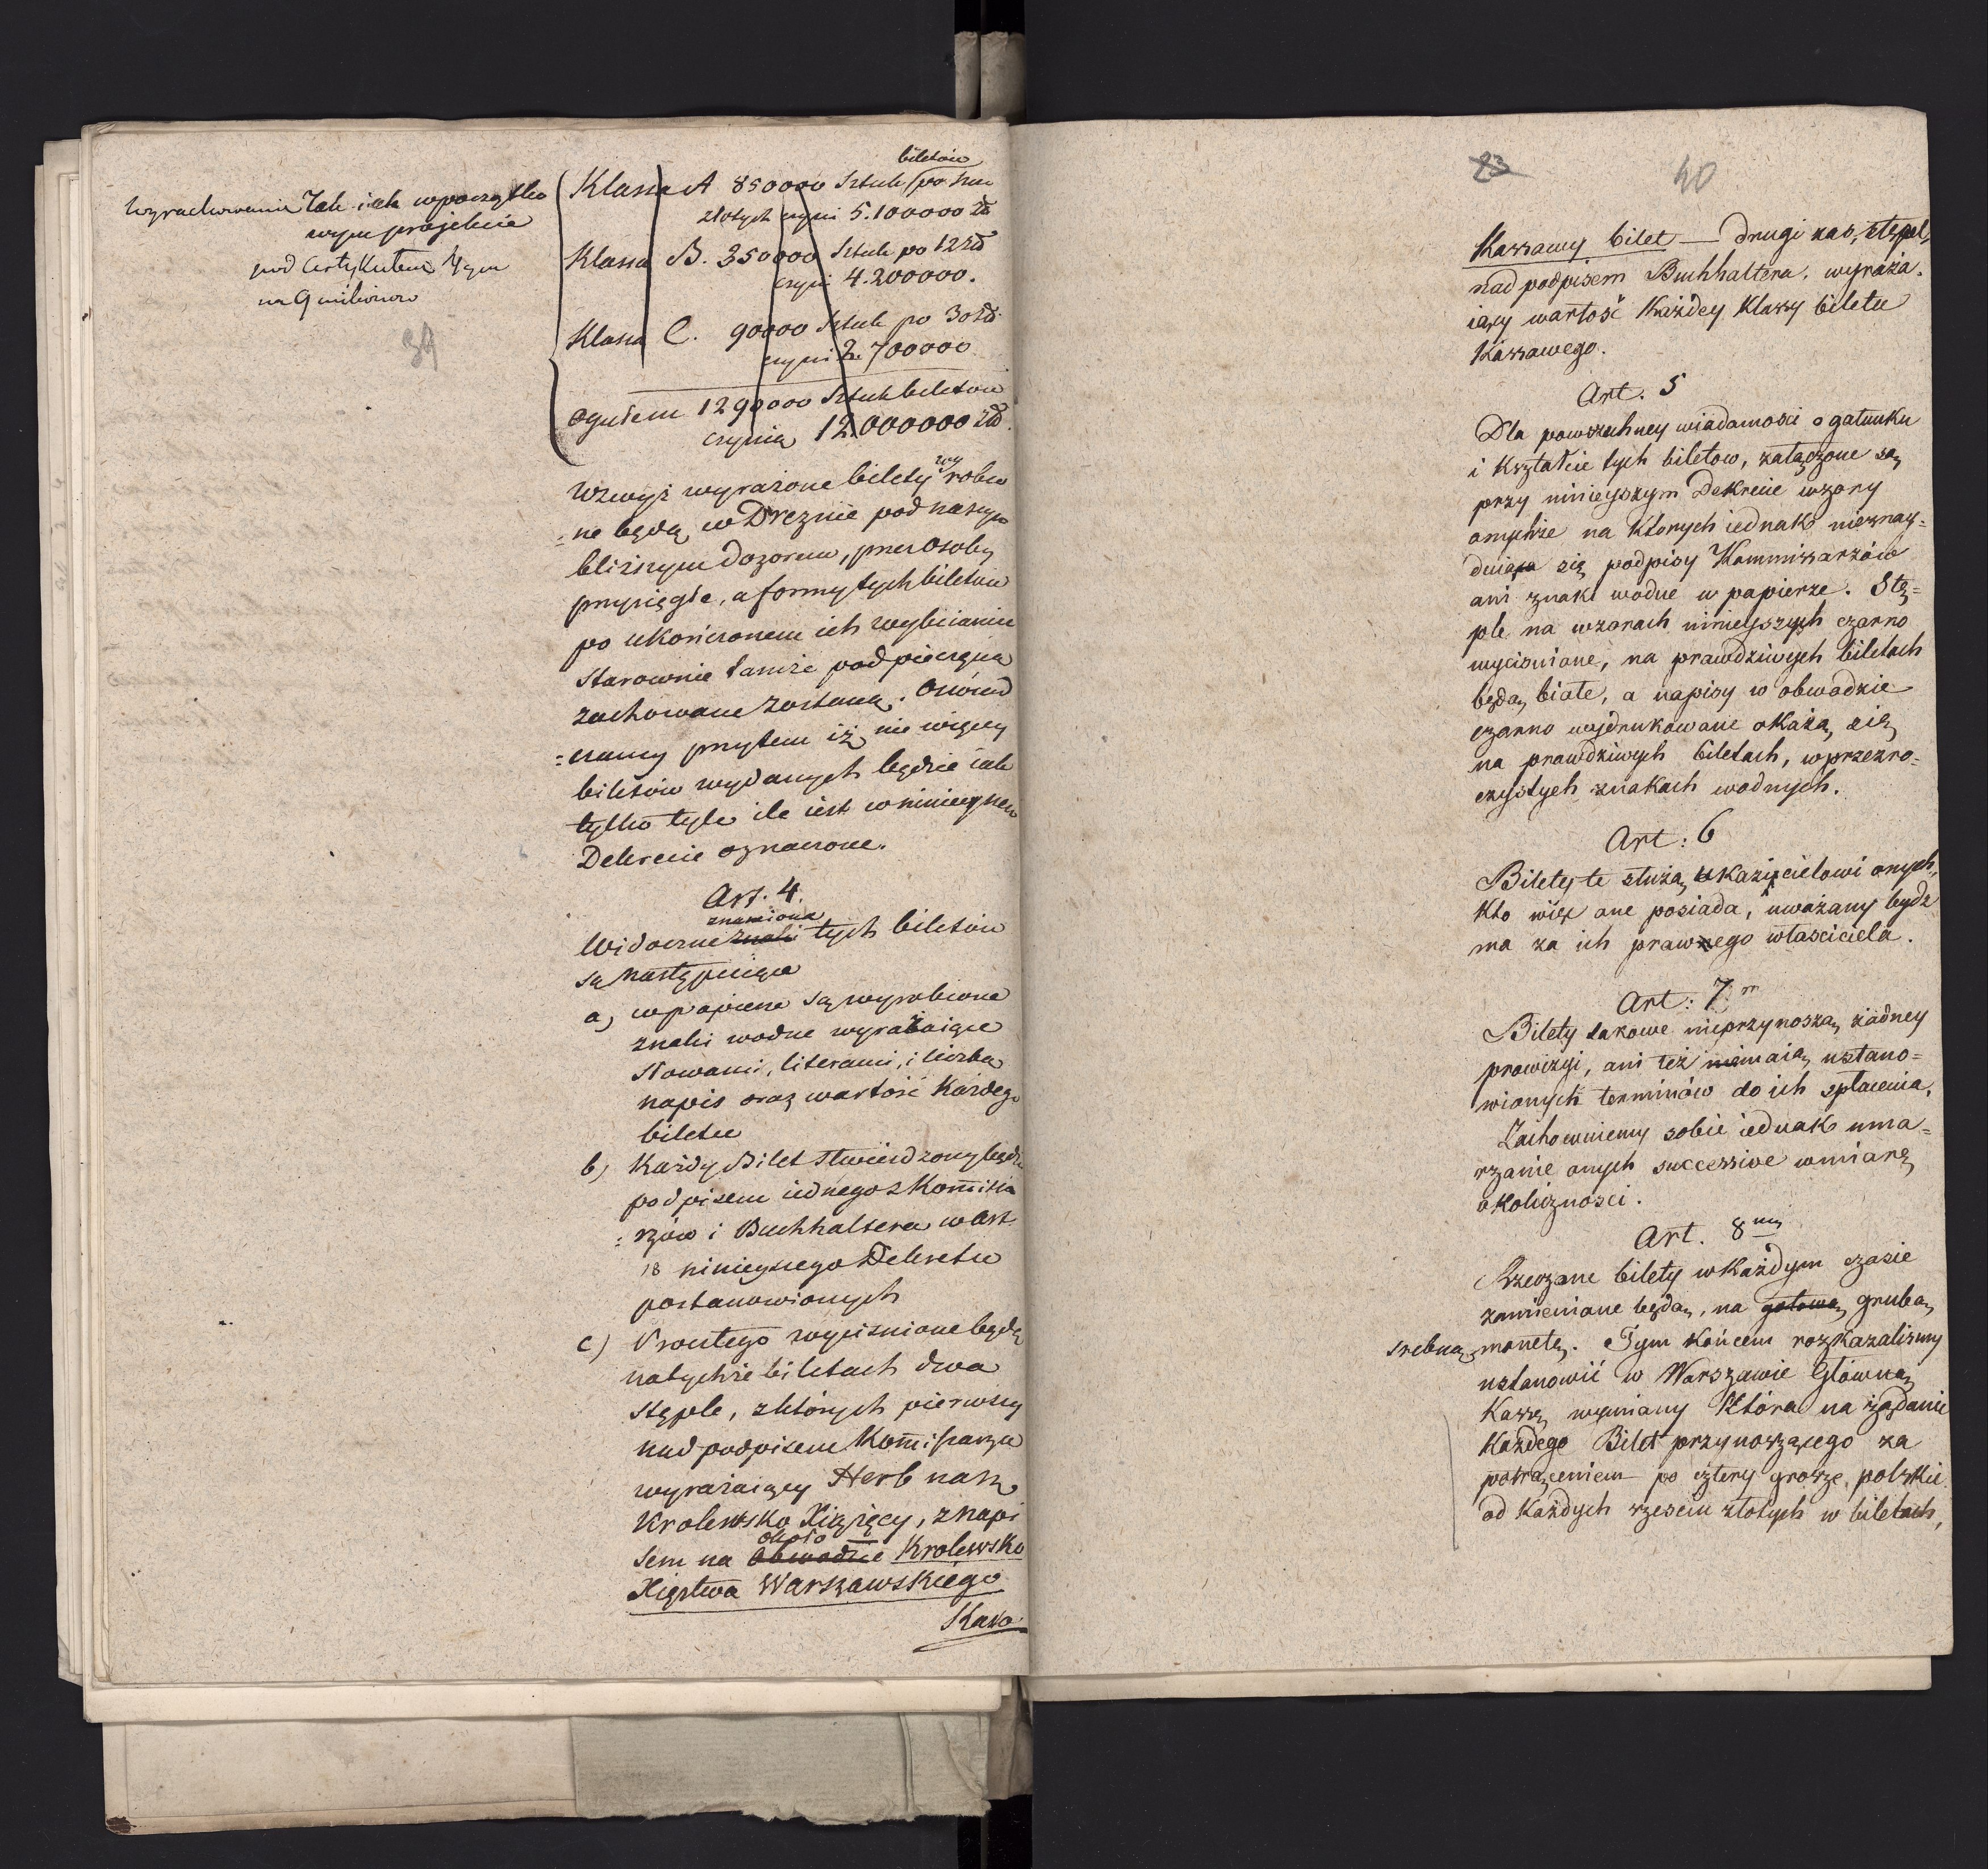 Wyrachowanie Tak iak w począthko
wym projekcie
pod Artykułem 4ym
na 9 milionow
39
biletów
Klassa A 850000 Sztuk po sześć
złotych czyni 5.100000 zł
Klassa B. 350000 Sztuk po 12 zł
czyni 4.200000.
Klassa C. 90000 Sztuk po 30 zł.
czyni 2.700000
ogułem 1290000 Sztuk biletow
czynią 12.000000 zł.
Wzwyż wyrażone bilety wy robio
=ne będą w Dreznie pod naszym
bliższym dozorem, przez osoby
przysięgłe, a formy tych biletow
po ukończonem ich wybiianiu
starownie tamże pod pieczęcią
zachowane zostaną. Oświad
=czamy przytem iż nie więcey
biletów wydanych będzie iak
tylko tyle ile iest w ninieyszem
Dekrecie oznaczone.
Art. 4.
znamiona
Widoczne znaki tych biletów
są następuiące
a) w papierze są wyrobione
znaki wodne wyrażaiące
słowami, literami, i liczbą
napis oraz wartość każdego
biletu
b) Każdy Bilet stwierdzony będzie
podpisem iednego z Kom̄issa
=rzów i Buchhaltera w Art.
18 ninieyszego Dekretu
postanowionych
c) Procz tego wyciśnione będą
na tychże biletach dwa
stęple, z których pierwszy
nad podpisem Kom̄issarza
wyrażaiący Herb nasz
Krolewsko Xiążęcy, z napi
około
sem na obwodzie Krolewsko
Xięstwa Warszawskiego
Kasso
23
40
Kassawy bilet — drugi zaś, stępel,
nad podpisem Buchhaltera, wyraża=
iący wartość każdey klassy biletu
Kassawego.
Art. 5
Dla powszechney wiadomości o gatunku
i kształcie tych biletow, załączone są
przy ninieyszym Dekrecie wzory
onychże na ktorych iednak nieznay=
duią się podpisy Kommissarzów
ani znaki wodne w papierze. Stę=
ple na wzorach ninieyszych czarno
wyciśnione, na prawdziwych biletach
będą białe, a napisy w obwodzie
czarno wydrukowane okażą się
na prawdziwych biletach, w przezro=
czystych znakach wodnych.
Art: 6
Bilety te służą okazicielowi onych,
Kto więc one posiada, uważany bydź
ma za ich prawnego własciciela.
Art: 7m
Bilety takowe nieprzynoszą żadney
prowizyi, ani też niemaią ustano=
wionych terminów do ich spłacenia.
Zachowuiemy sobie iednak uma=
rzanie onych successive w miarę
okoliczności.
Art. 8my
Rzeczone bilety w każdym czasie
zamieniane będą, na gotową grubą
srebrną monetę. Tym końcem rozkazaliśmy
ustanowić w Warszawie Główną
Kassę wymiany Która na żądanie
każdego Bilet przynoszącego za
potrąceniem po cztery grosze polskie
od każdych sześciu złotych w biletach,